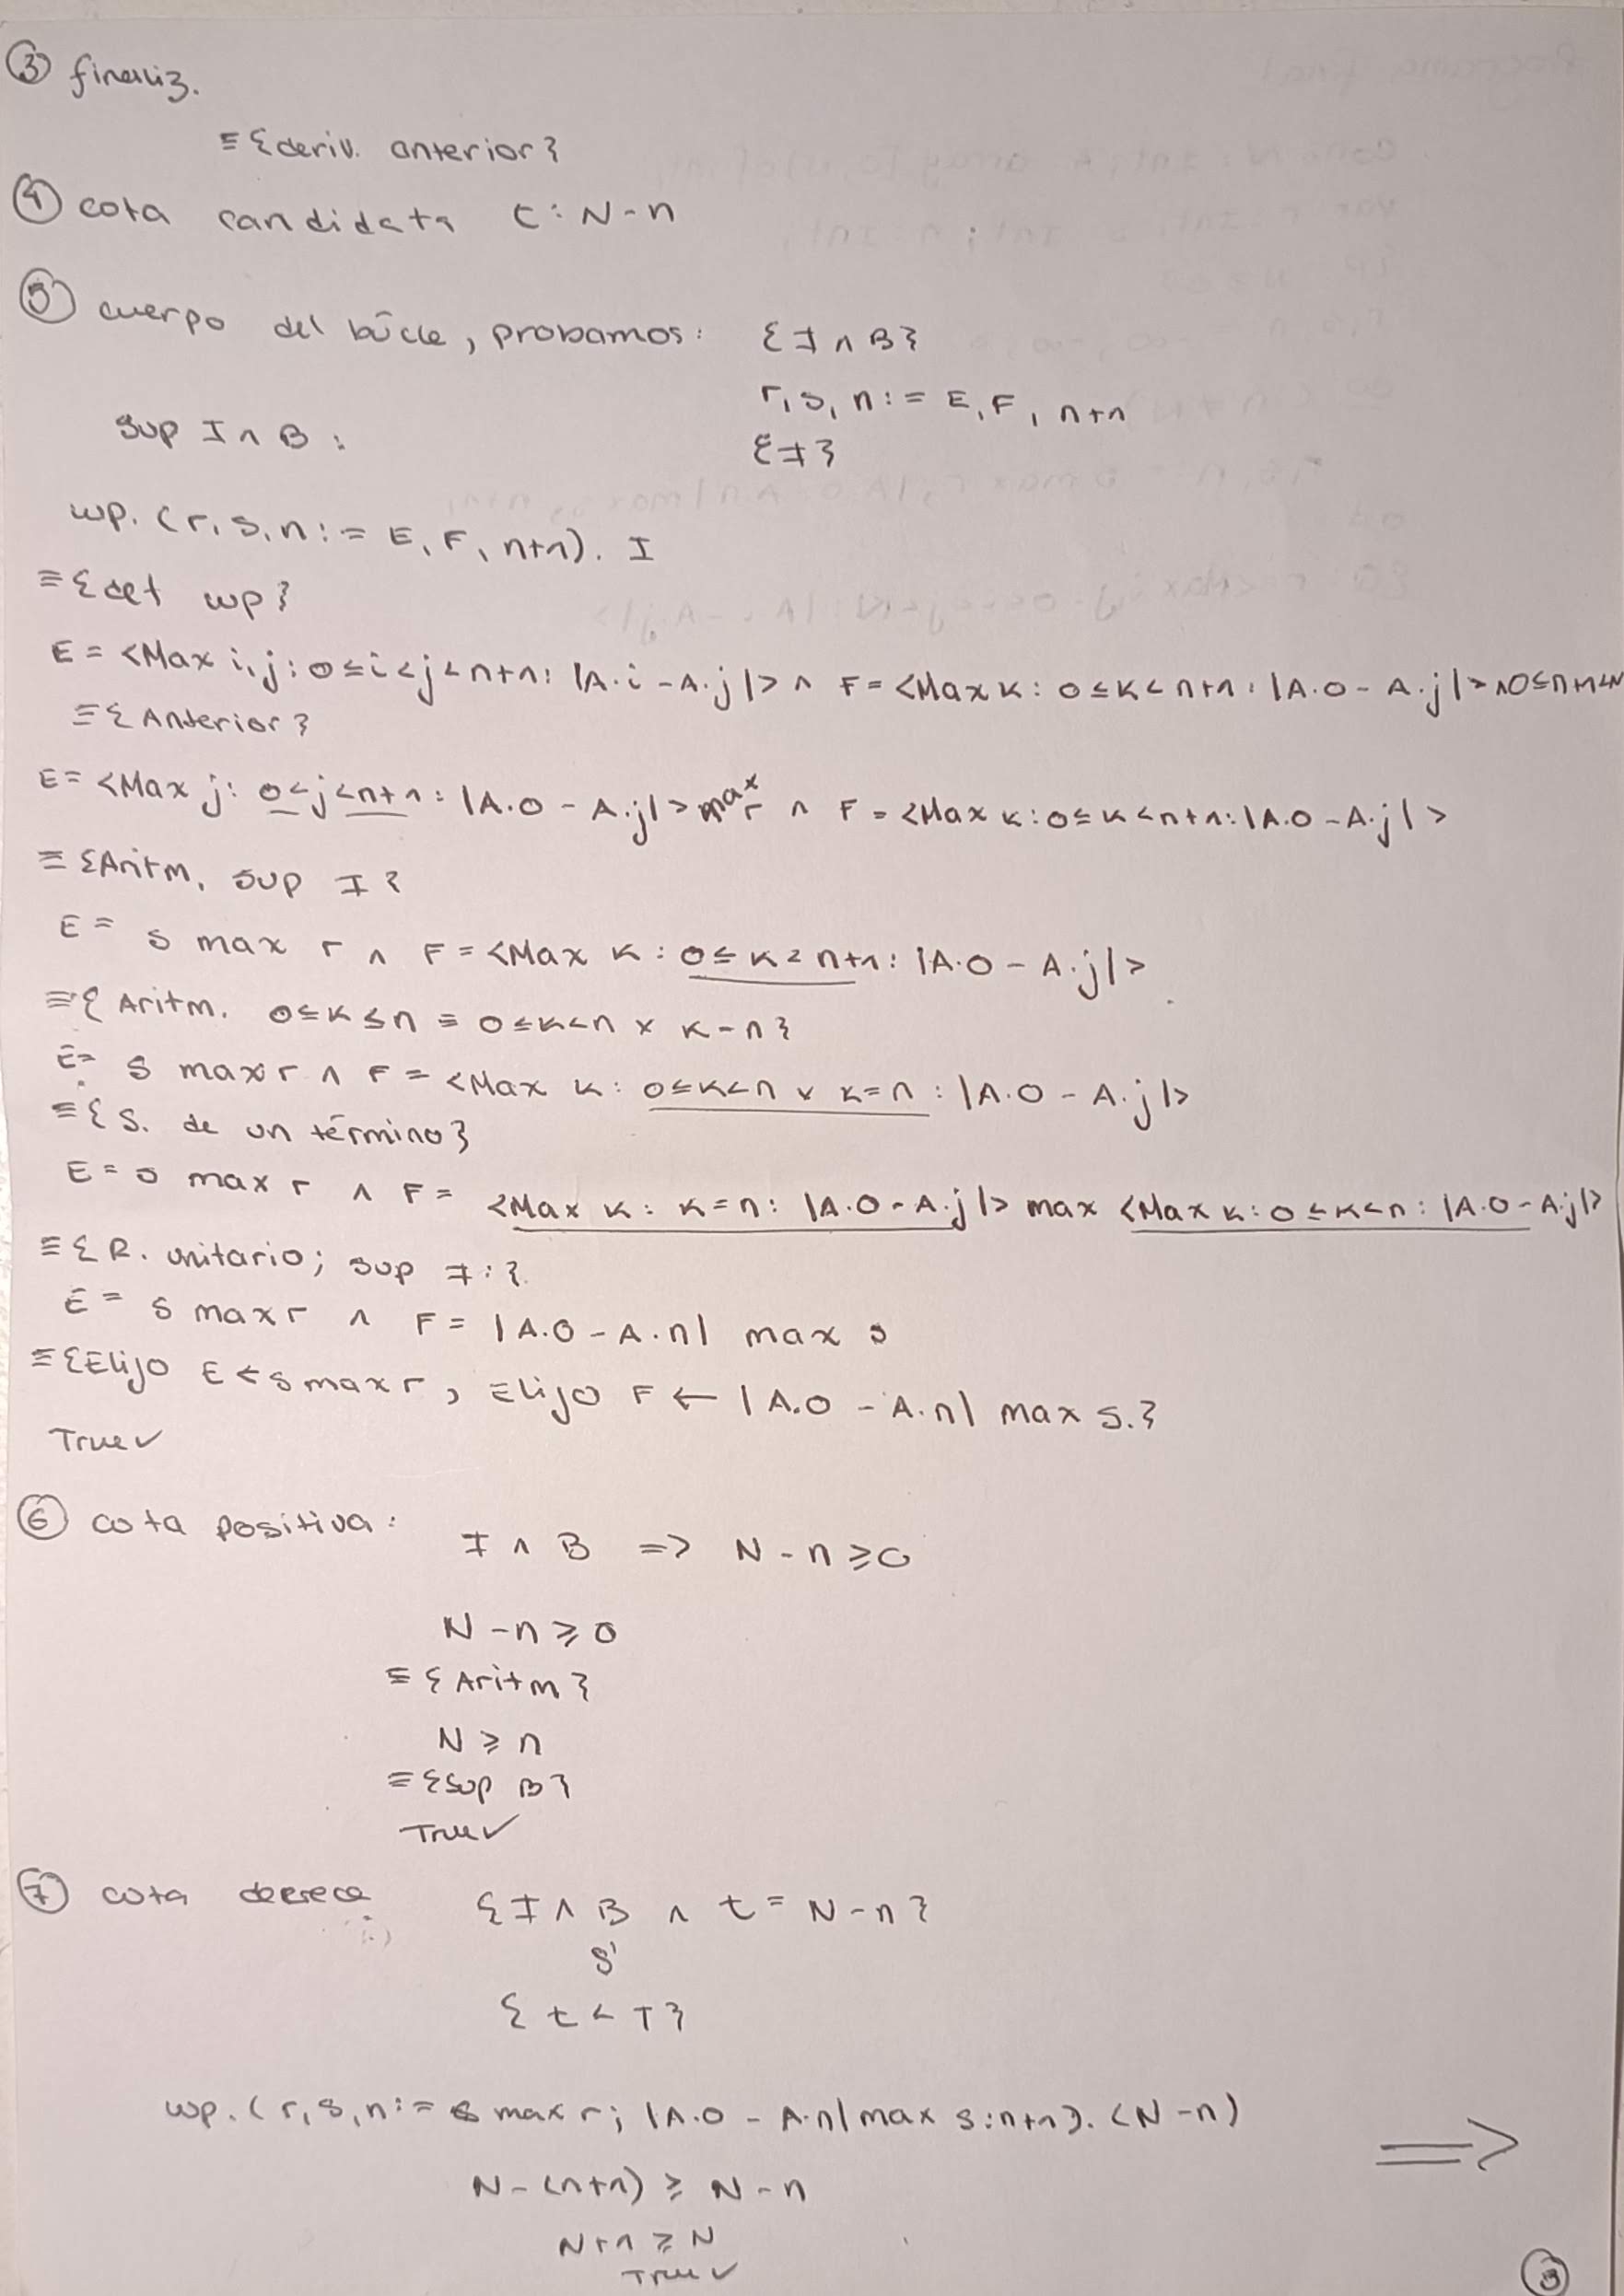 ③ finaliz.
≡{deriv. anterior}
④ cota candidata t: N-n
⑤ cuerpo del bucle, probamos: {I ∧ B}
r,s,n := E,F, n+1
sup I ∧ B: {I}
wp.(r,s,n := E,F,n+1). I
≡{def wp}
E = <Max i,j: 0≤i<j<n+1: |A.i - A.j|> ∧ F = <Max k: 0≤k<n+1: |A.0 - A.j|> ∧0≤n+1<N
≡{Anterior}
E= <Max j: 0<j<n+1: |A.0 - A.j|> max r ∧ F = <Max k: 0≤k<n+1: |A.0 - A.j|>
≡{Aritm, sup I}
E = s max r ∧ F = <Max k: 0≤k<n+1: |A.0 - A.j|>
≡{Aritm. 0≤k≤n ≡ 0≤k<n ∨ k-n}
E= s max r ∧ F = <Max k: 0≤k<n ∨ k=n: |A.0 - A.j|>
≡{S. de un término}
E = s max r ∧ F = <Max k: k=n: |A.0 - A.j|> max <Max k: 0≤k<n: |A.0 - A.j|>
≡{R. unitario; sup I:}
E = s max r ∧ F = |A.0 - A.n| max s
≡{Elijo E ← s max r, Elijo F ← |A.0 - A.n| max s.}
True✓
⑥ cota positiva: I ∧ B => N-n≥0
N-n≥0
≡{Aritm}
N≥n
≡{sup B}
True✓
⑦ cota decrece {I ∧ B ∧ t = N-n}
S'
{t < T}
wp.(r,s,n := s max r; |A.0 - A.n| max s: n+1). (N-n) ⟹
N-(n+1) ≥ N-n
N+1 ≥ N
True✓
③